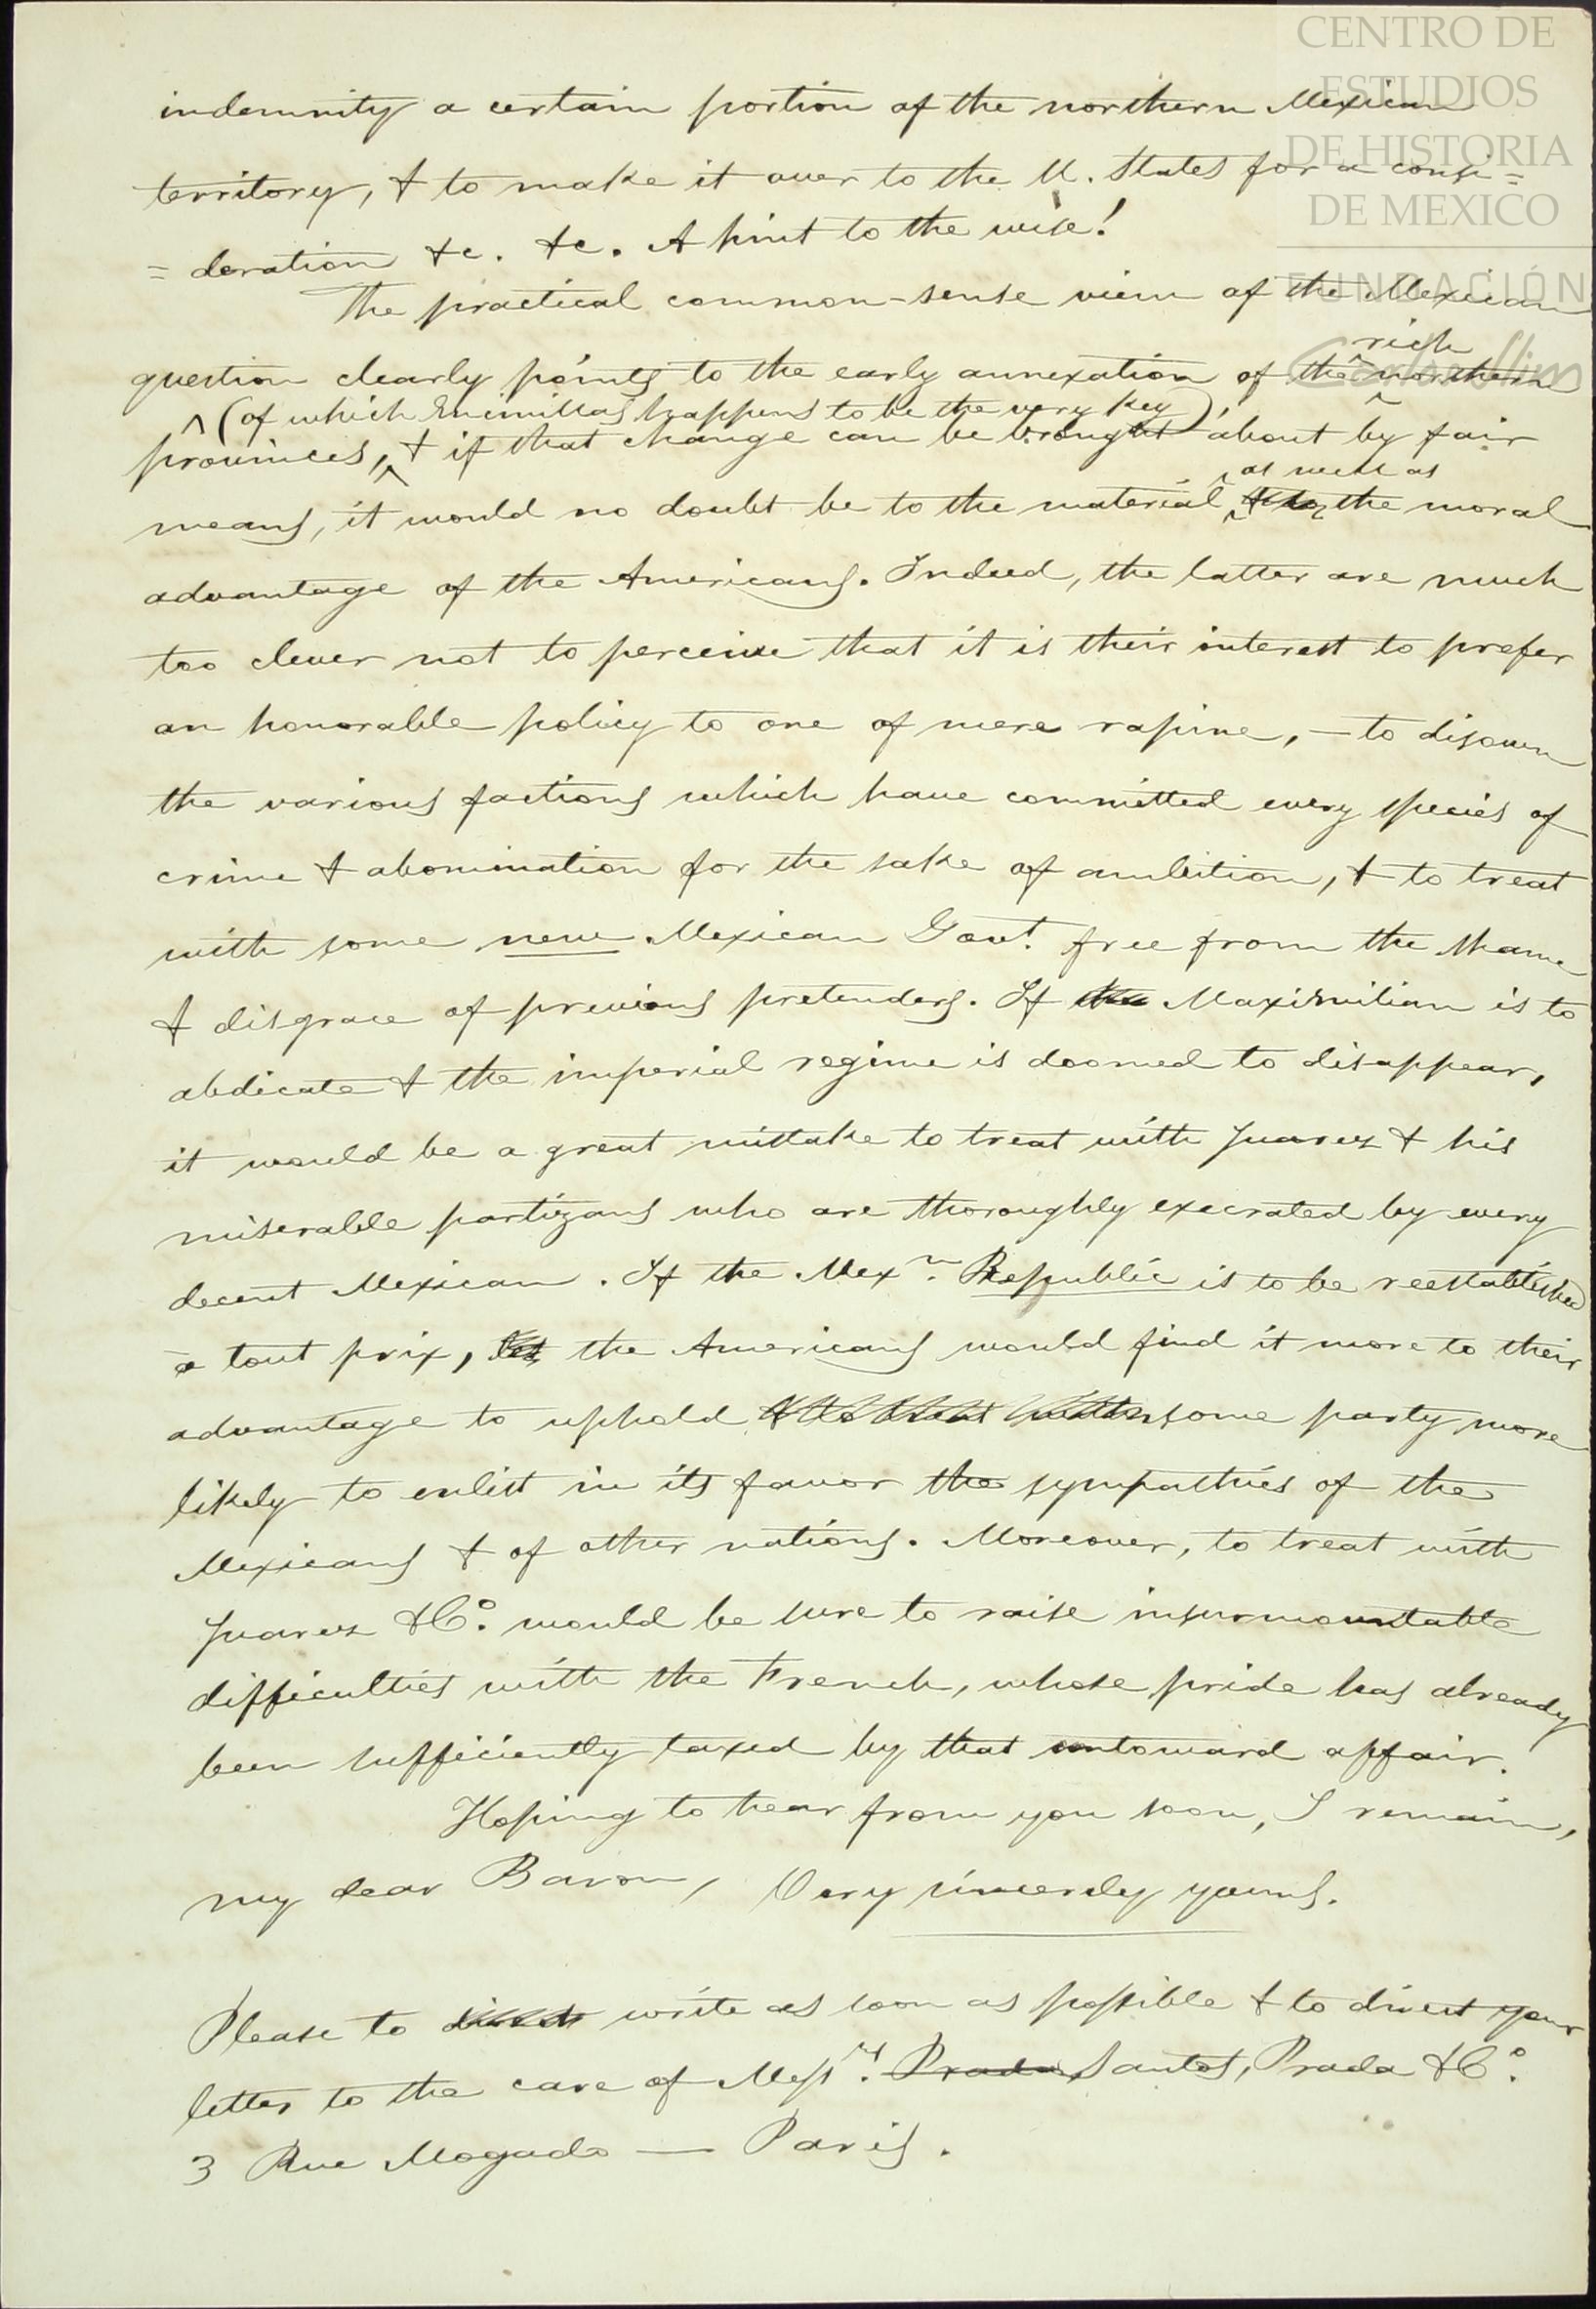 CENTRO DE
ESTUDIOS
DE HISTORIA
DE MEXICO
FUNDACIÓN
indemnity a certain portion of the northern Mexican
territory, & to make it over to the U. States for a consi=
=deration &c. &c. A hint to the wise!
The practical common-sense view of the Mexican
rich
question clearly points to the early annexation of the northern
(of which Enimillas happens to be the very key),
provinces, & if that change can be brought about by fair
as well as
means, it would no doubt be to the material the moral
advantage of the Americans. Indeed, the latter are much
too clever not to perceive that it is their interest to prefer
an honorable policy to one of mere rapine, — to disown
the various factions which have committed every species of
crime & abomination for the sake of ambition, & to treat
with some new Mexican Govt. free from the shame
& disgrace of previous pretenders. If the Maximilian is to
abdicate & the imperial regime is doomed to disappear,
it would be a great mistake to treat with Juarez & his
miserable partizans who are thoroughly execrated by every
decent Mexican. If the Mexn. Republic is to be reestablished
a tout prix, the Americans would find it more to their
advantage to uphold & to treat with some party more
likely to enlist in its favor the sympathies of the
Mexicans & of other nations. Moreover, to treat with
Juarez & Co. would be sure to raise insurmountable
difficulties with the French, whose pride has already
been sufficiently taxed by that untoward affair.
Hoping to hear from you soon, I remain,
my dear Baron, Very sincerely yours.
Please to direct write as soon as possible & to direct your
letter to the care of Messrs. Prada Santos, Prada & Co.
3 Rue Mogado — Paris.